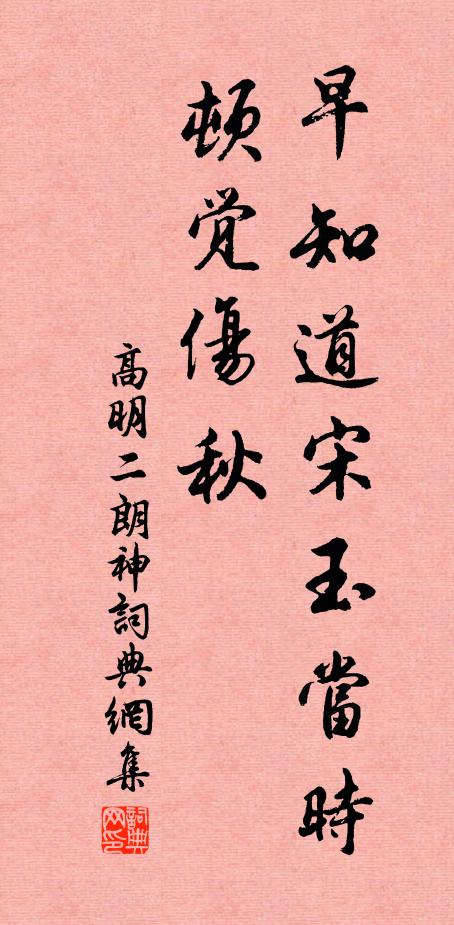 早知道宋玉當時
頓覺傷秋
高明二朗神詞典網集
詞典网印